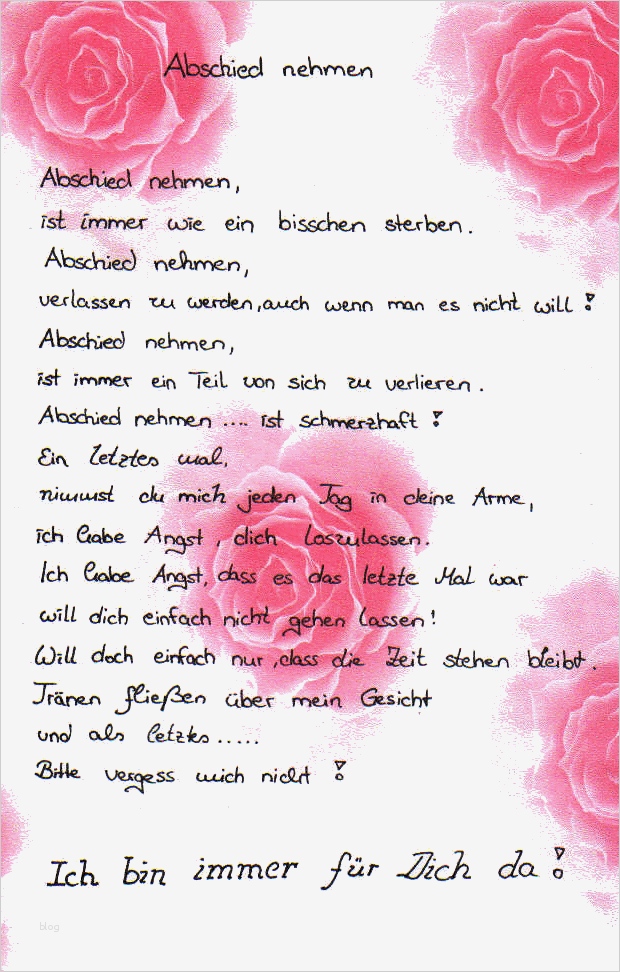 Abschied nehmen
Abschied nehmen,
ist immer wie ein bisschen sterben.
Abschied nehmen,
verlassen zu werden, auch wenn man es nicht will!
Abschied nehmen,
ist immer ein Teil von sich zu verlieren.
Abschied nehmen .... ist schmerzhaft!
Ein letztes mal,
nimmst du mich jeden Tag in deine Arme,
ich habe Angst, dich loszulassen.
Ich habe Angst, dass es das letzte Mal war
will dich einfach nicht gehen lassen!
Will doch einfach nur, dass die Zeit stehen bleibt.
Tränen fließen über mein Gesicht
und als letztes.....
Bitte vergess mich nicht!
Ich bin immer für Dich da!
blog